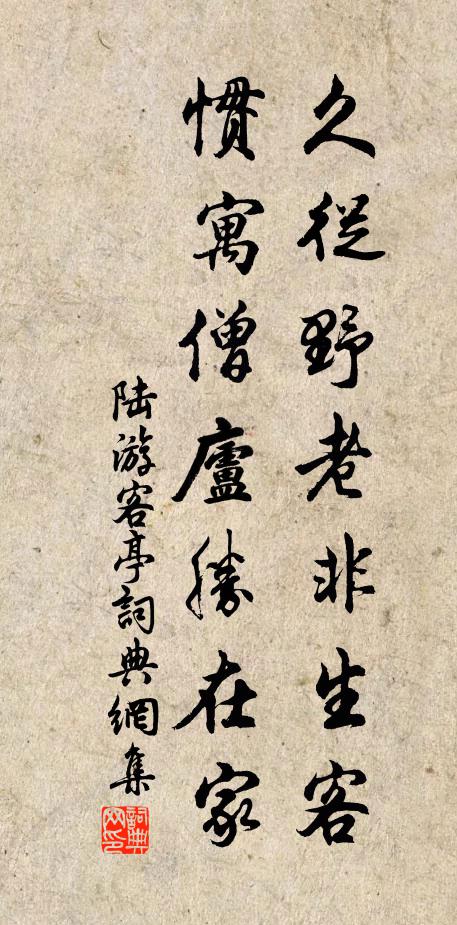 久從野老非生客
慣寓僧廬勝在家
陆游客亭詞典網集
詞典
网印